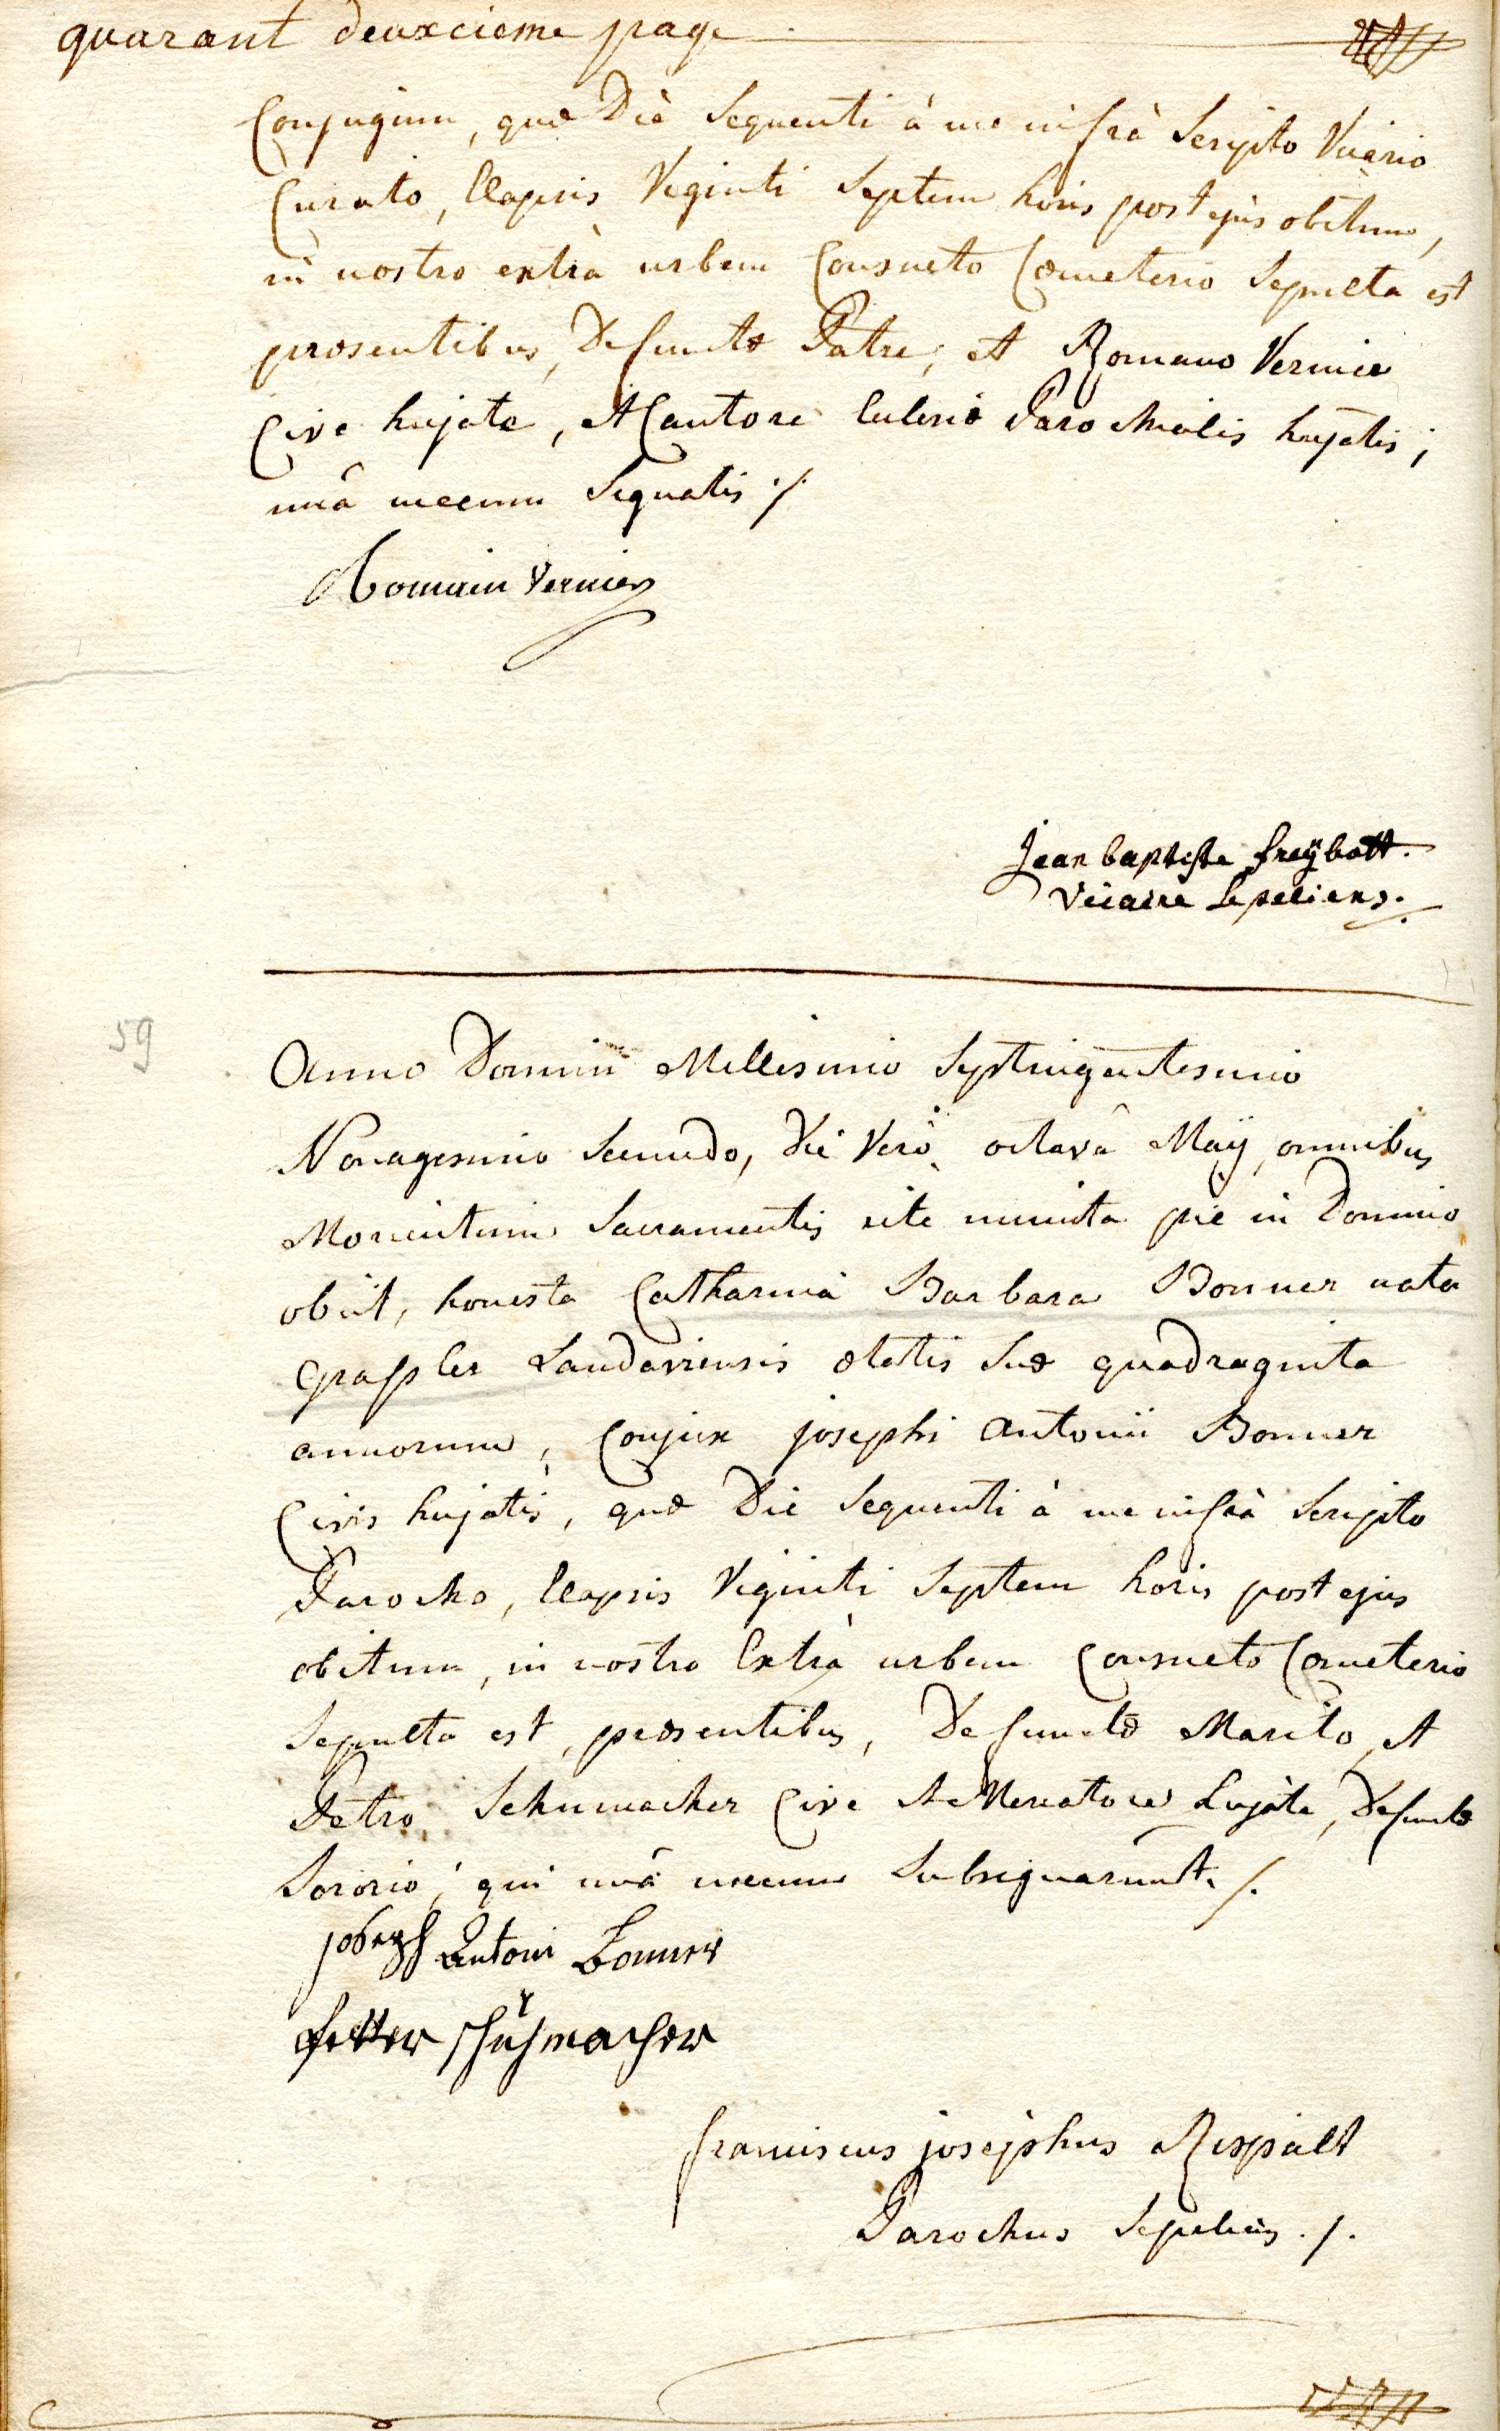 quarant deuxcieme page
Conjugum, quæ Diè Sequenti à me infrà Scripto Vicario
Curato, Elapsis Veginti Septem horis post ejus obitum,
in nostro extrà urbem Consueto Cœmeterio Sepulta est
præsentibus, Defunctæ Patre, et Romano Vernier
Cive hujate, et Cantore Ecclesiæ Parochialis hujatis;
unâ mecum Signatis ./.
Romain Vernier
jean baptiste freÿbott.
Vicaire Sepeliens.
59
Anno Domini Millesimo Septingentesimo
Nonagesimo Secundo, Die Verò octavâ Maÿ, omnibus
Morientium Sacramentis rite munita piè in Domino
obiit, honesta Catharina Barbara Bonner nata
Grassler Landaviensis ætatis Suæ quadraginta
annorum, Conjux josephi Antonii Bonner
Civis hujatis, quæ Die Sequenti à me infrà Scripto
Parocho, Elapsis Viginti Septem horis post ejus
obitum, in nostro Extrà urbem Consueto Cœmeterio
Sepulta est, præsentibus, Defunctæ Marito, et
Petro Schumacher Cive et Mercatore hujate, Defunctæ
Sororio, qui unâ mecum Subsignarunt ./.
Joseph Antoni Bonner
Petter schuhmacher
franciscus josephus Rispalt
Parochus Sepeliens ./.